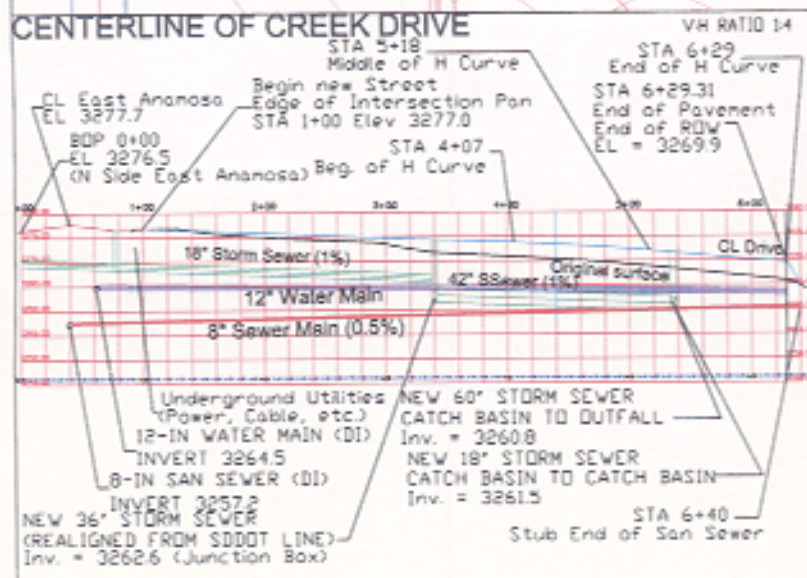 CENTERLINE OF CREEK DRIVE
V:H RATIO 1:4
STA 5+18
Middle of H Curve
STA 6+29
End of H Curve
CL East Anamosa
EL 3277.7
Begin new Street
Edge of Intersection Pan
STA 1+00 Elev 3277.0
STA 6+29.31
End of Pavement
End of ROW
EL = 3269.9
BOP 0+00
EL 3276.5
(N Side East Anamosa)
STA 4+07
Beg. of H Curve
1+00
2+00
3+00
4+00
5+00
6+00
CL Drive
18" Storm Sewer (1%)
42" SSewer (1%)
Original surface
12" Water Main
8" Sewer Main (0.5%)
Underground Utilities
(Power, Cable, etc.)
12-IN WATER MAIN (DI)
INVERT 3264.5
8-IN SAN SEWER (DI)
INVERT 3257.2
NEW 36" STORM SEWER
(REALIGNED FROM SDDOT LINE)
Inv. = 3262.6 (Junction Box)
NEW 60" STORM SEWER
CATCH BASIN TO OUTFALL
Inv. = 3260.8
NEW 18" STORM SEWER
CATCH BASIN TO CATCH BASIN
Inv. = 3261.5
STA 6+40
Stub End of San Sewer